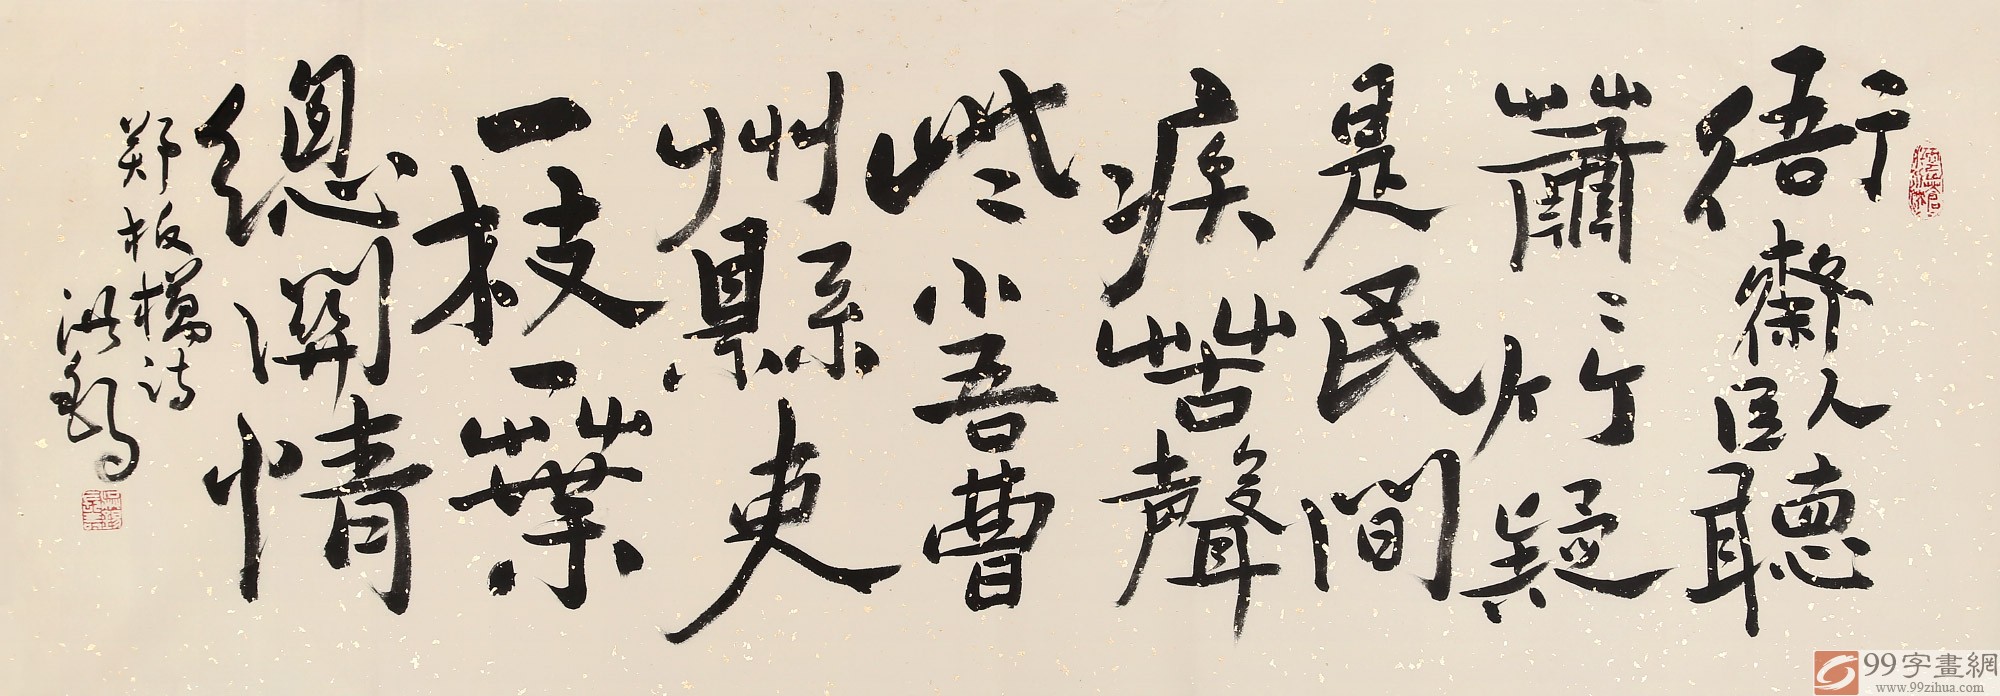 衙齋臥聽
蕭々竹疑
是民間
疾苦聲
些小吾曹
州縣吏
一枝一葉
總關情
郑板橋诗
99字畫網
www.99zihua.com